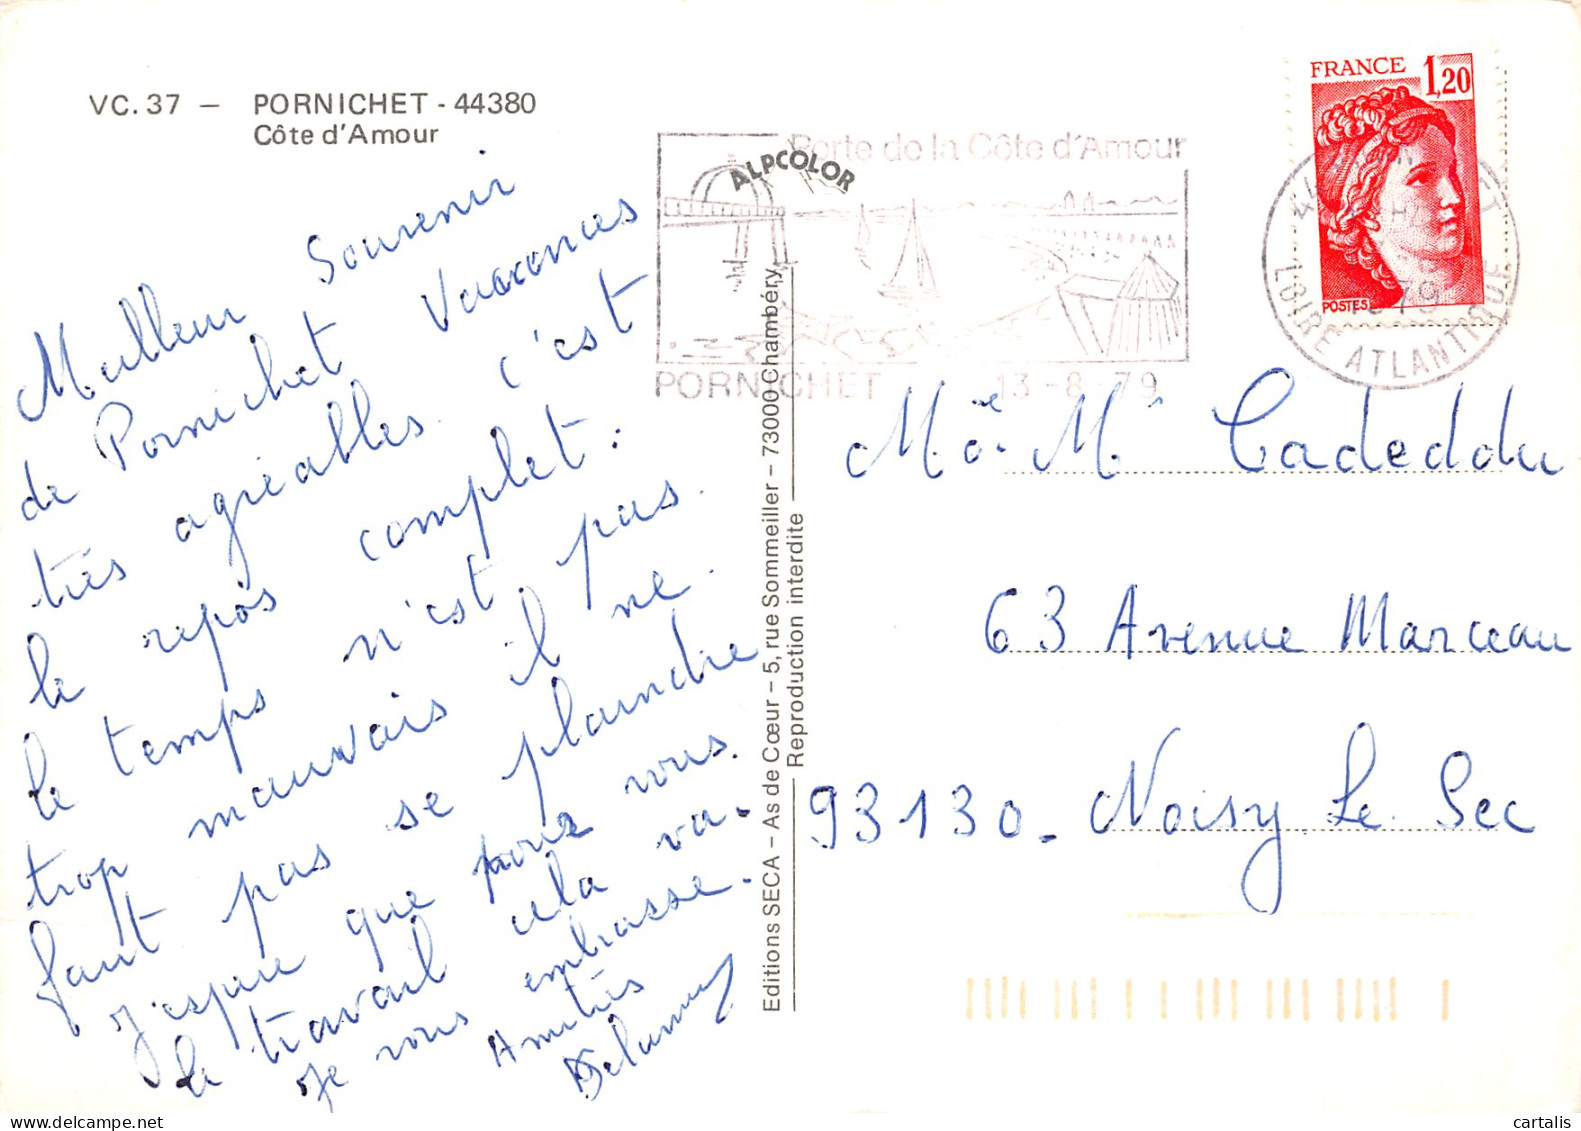 VC. 37 — PORNICHET - 44380
Côte d'Amour
Meilleur Souvenir
de Pornichet Vacances
très agréables. c'est
le repos complet :
le temps n'est pas
trop mauvais il ne
faut pas se plaindre
j'espère que pour vous
le travail cela va.
Je vous embrasse.
Amitiés
Porte de la Côte d'Amour
ALPCOLOR
PORNICHET 13-8-79
FRANCE 1,20
POSTES
LOIRE ATLANTIQUE
Editions SECA – As de Cœur – 5, rue Sommeiller – 73000 Chambéry
Reproduction interdite
M. et M. Cadeddu
63 Avenue Marceau
93130 - Noisy Le Sec
cartalis